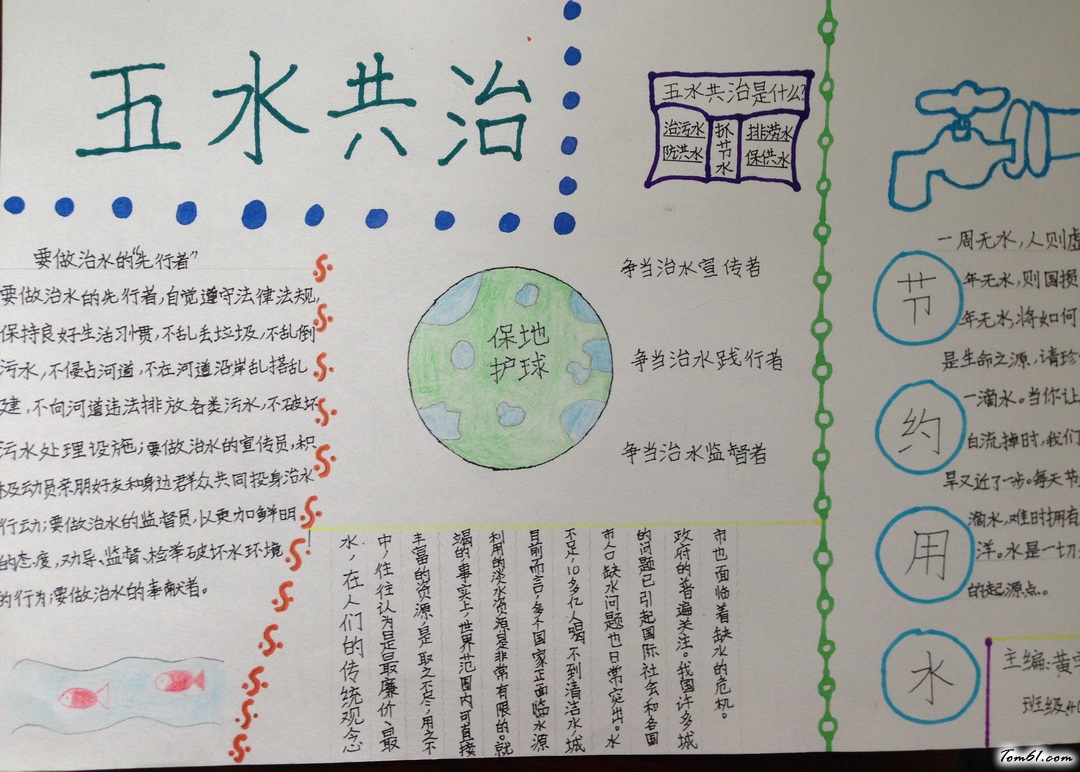 五水共治
要做治水的“先行者”
要做治水的先行者,自觉遵守法律法规,
保持良好生活习惯,不乱丢垃圾,不乱倒
污水,不侵占河道,不在河道沿岸乱搭乱
建,不向河道违法排放各类污水,不破坏
污水处理设施;要做治水的宣传员,积
极动员亲朋好友和身边群众共同投身治水
行动;要做治水的监督员,以更加鲜明
的态度,劝导、监督、检举破坏水环境
的行为;要做治水的奉献者。
保地
护球
五水共治是什么?
治污水
防洪水
抓节水
排涝水
保供水
争当治水宣传者
争当治水践行者
争当治水监督者
水，在人们的传统观念
中，往往认为是最廉价、最
丰富的资源，是取之不尽，用之不
竭的事实上，世界范围内可直接
利用的淡水资源是非常有限的。就
目前而言，多个国家正面临水源
不足，10多亿人喝不到清洁水城
市人口缺水问题也日常突出。水
的问题已引起国际社会和各国
政府的普遍关注。我国许多城
市也面临着缺水的危机。
节
约
用
水
一周无水,人则虚
年无水,则国损
年无水,将如何
是生命之源,请珍
一滴水。当你让
自流掉时,我们
早又近了一步。每天节
滴水,难时拥有
洋。水是一切
的起源点。
主编:黄
班级:4
Tom61.com